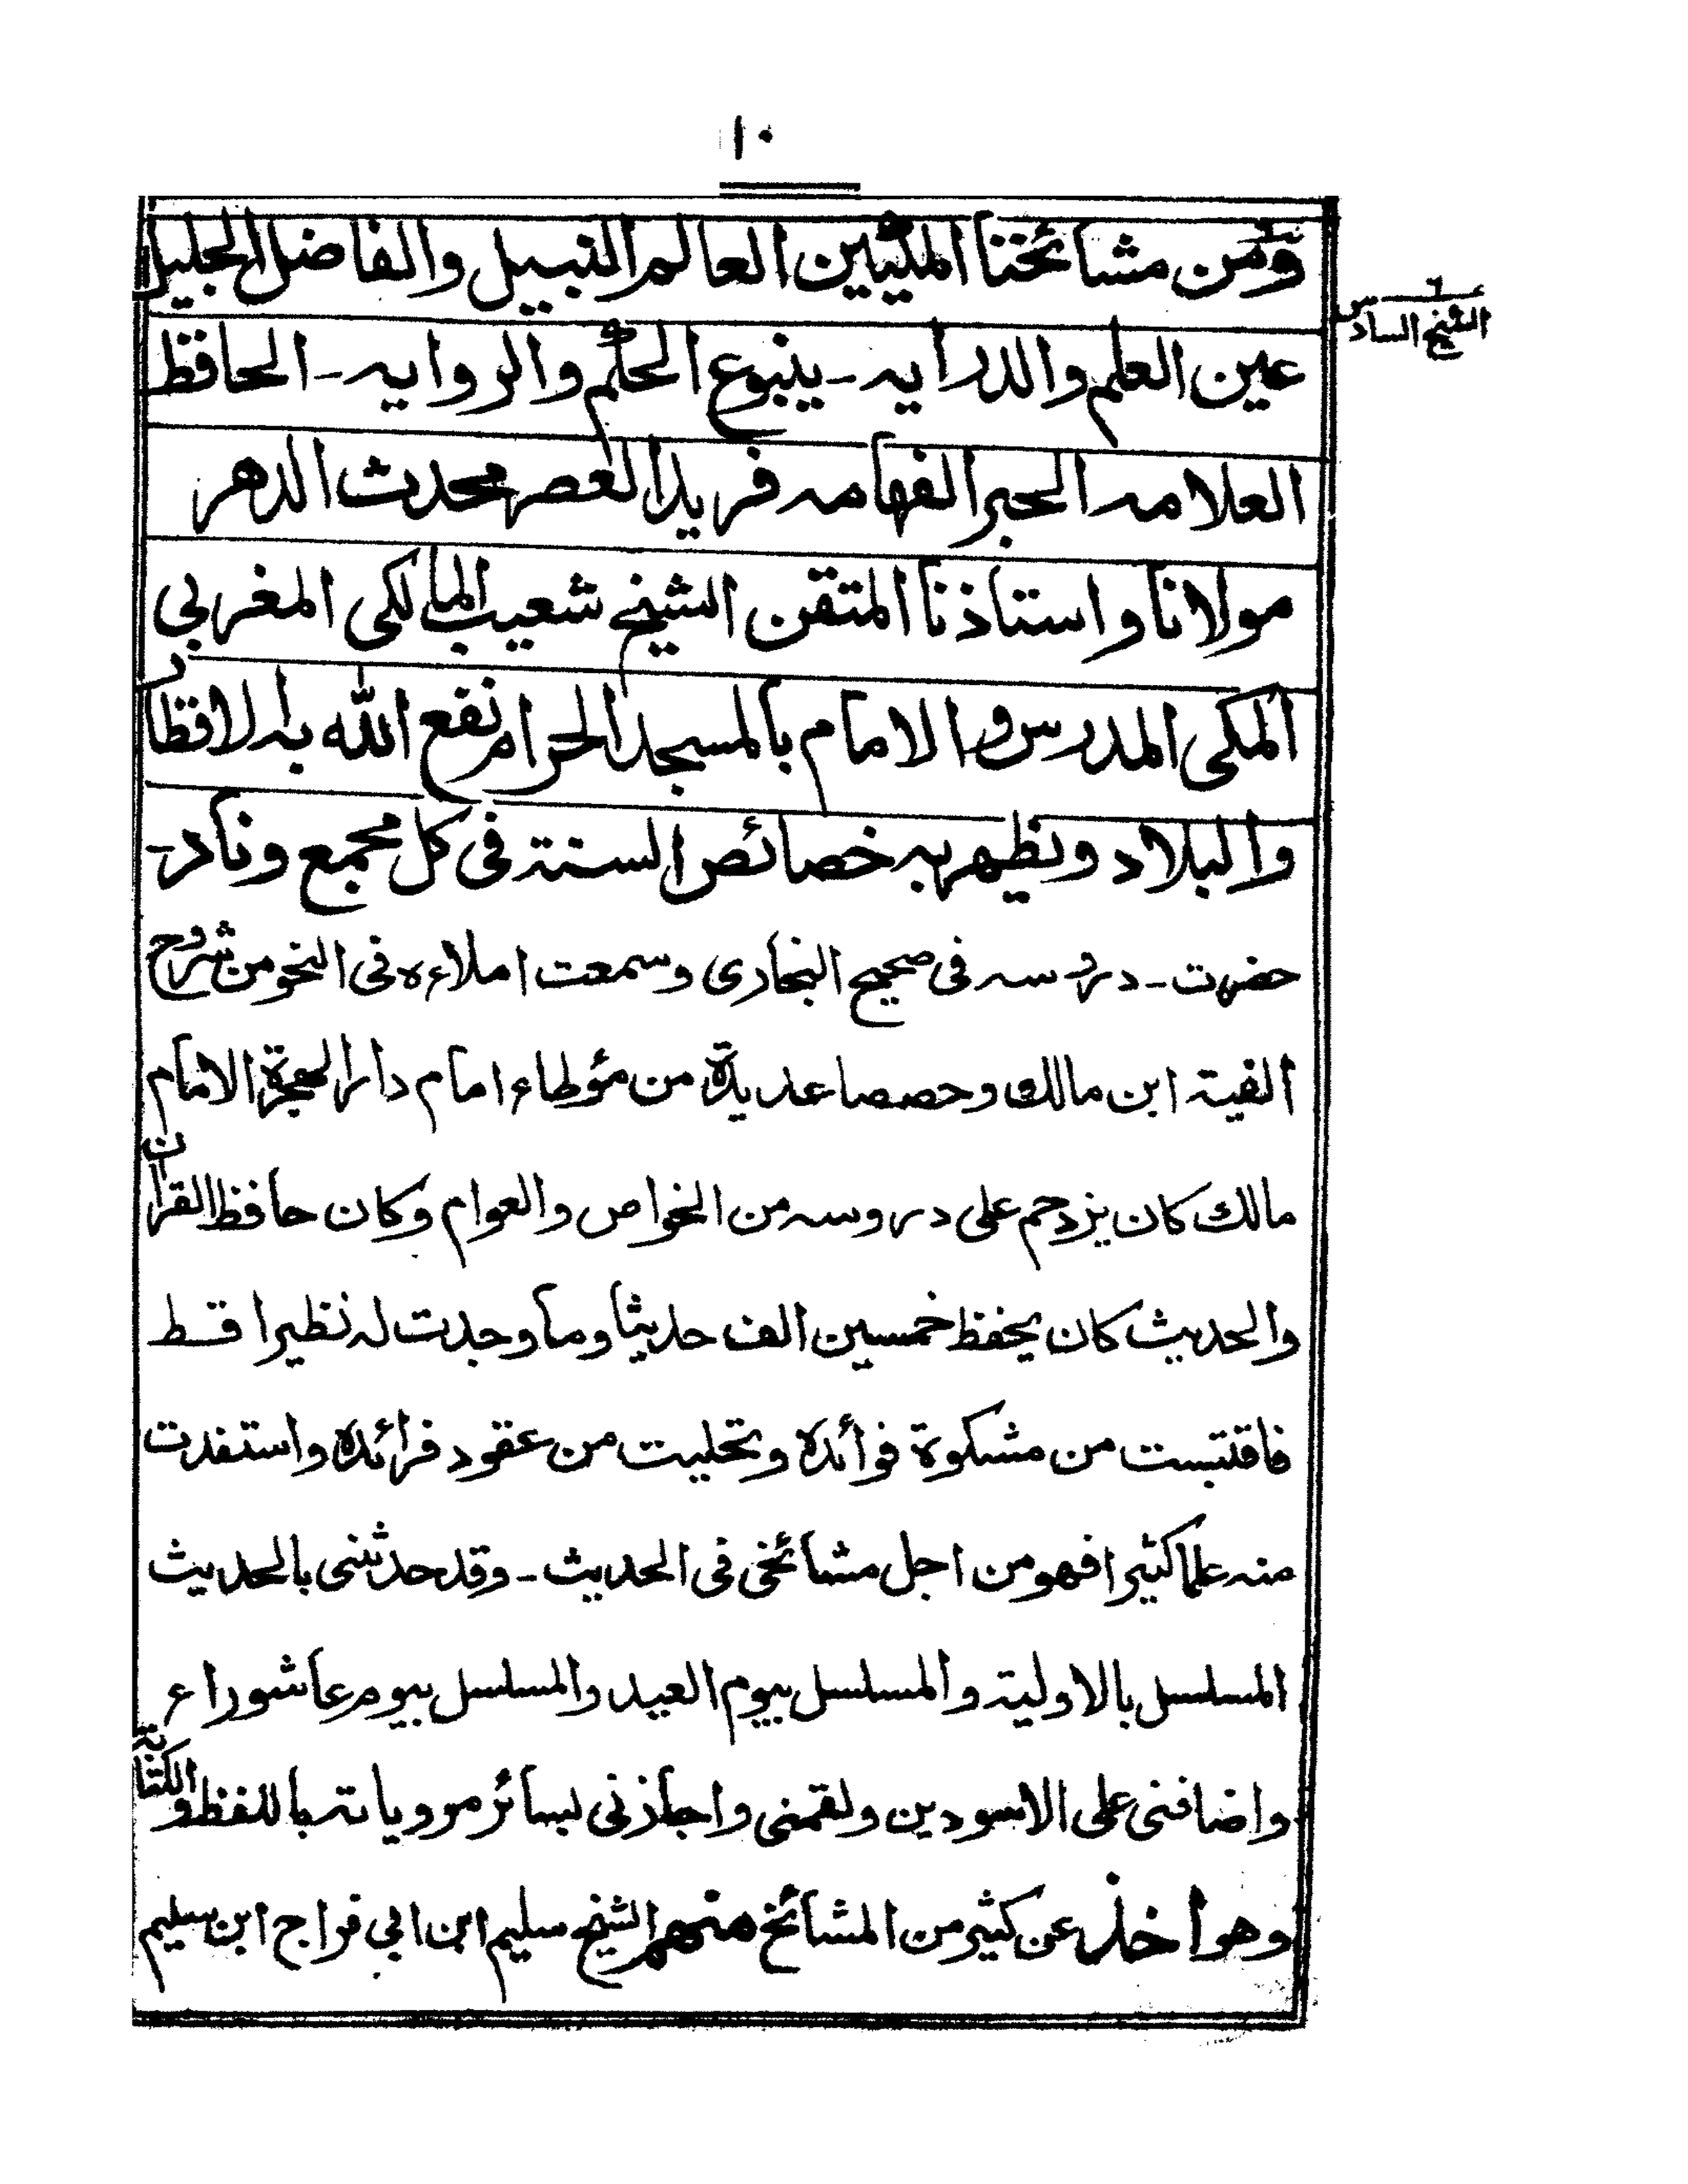 ١٠
ومن مشائخنا المكيين العالم النبيل والفاضل الجليل
٦
الشيخ السادس
عين العلم والدرايه - ينبوع الحكم والروايه - الحافظ
العلامه الحبر الفهامه فريد العصر محدث الدهر
مولانا واستاذنا المتقن الشيخ شعيب المالكى المغربي
المكى المدرس و الامام بالمسجد الحرام نفع الله به الاقطار
والبلاد ونظهر به خصائص السنة فى كل مجمع وناد -
حضرت - دروسه فى صحيح البخارى وسمعت املاءه فى النحو من شروح
الفية ابن مالك وحصصا عديدة من مؤطاء امام دار الهجرة الامام
مالك كان يزدحم على دروسه من الخواص والعوام وكان حافظ القران
والحديث كان يحفظ خمسين الف حديثا وما وجدت له نظيرا قط
فاقتبست من مشكوة فوائده وتحليت من عقود فرائده واستفدت
منه علما كثيرا فهو من اجل مشائخى فى الحديث - وقد حدثنى بالحديث
المسلسل بالاولية والمسلسل بيوم العيد والمسلسل بيوم عاشوراء
واضافنى على الاسودين ولقمنى واجازنى لسائر مروياته باللفظ والكتابة
وهو اخذ عن كثير من المشائخ منهم الشيخ سليم ابن ابي فراج ابن سليم